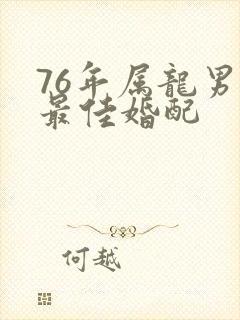 76年属龍男
最佳婚配
何越